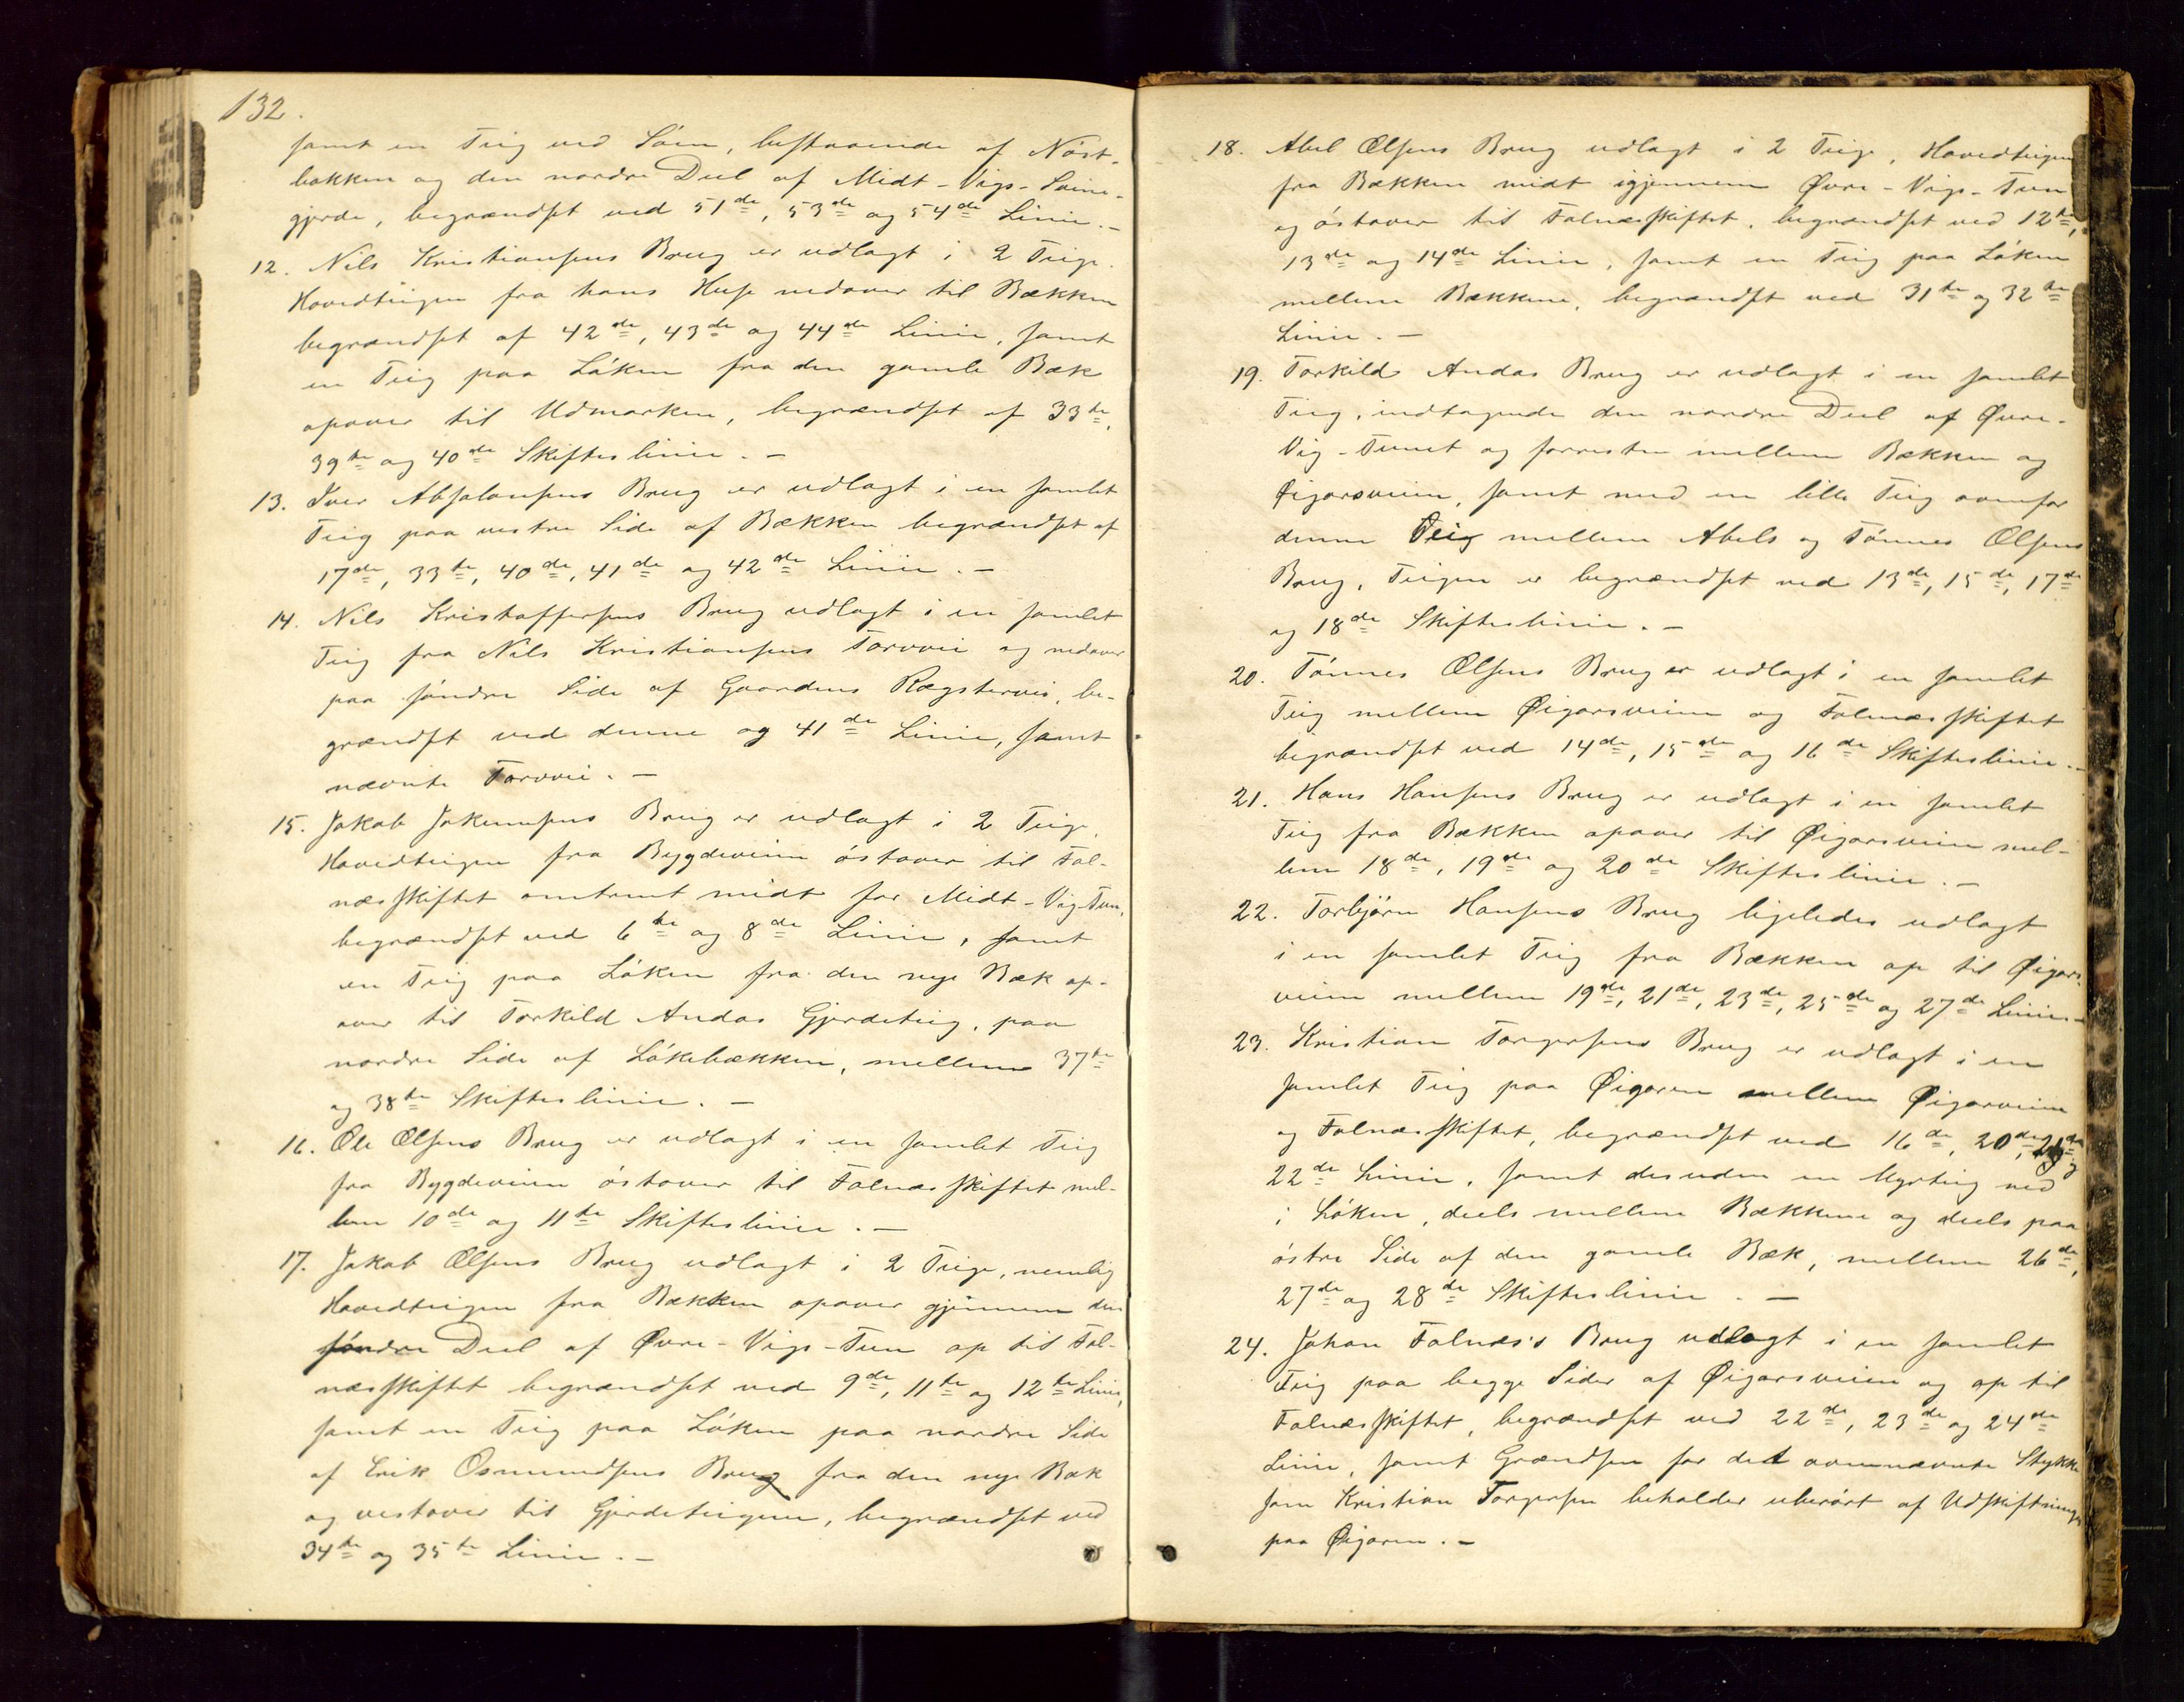 132.
samt en Teig ved Söen, bestaaende af Nöst-
bakken og den nordre Deel af Midt-Vigs-Svine-
gjerde, begrændset ved 51de, 53de og 54de Linie.-
12. Nils Kristiansens Brug er udlagt i 2 Teige.
Hovedteigen fra hans Huse nedover til Bækken
begrændset af 42de, 43de og 44de Linie, samt
en Teig paa Löken fra den gamle Bæk
opover til Udmarken, begrændset af 33te,
39te og 40de Skifteslinie. -
13. Iver Absalonsens Brug er udlagt i en samlet
Teig paa vestre Side af Bækken begrændset af
17de, 33te, 40de, 41de og 42de Linie. -
14. Nils Kristoffersens Brug udlagt i en samlet
Teig fra Nils Kristiansens Torvvei og nedover
paa söndre Side af Gaardens Rægstervei, be-
grændset ved denne og 41de Linie, samt
nævnte Torvvei. -
15. Jakob Jokumsens Brug er udlagt i 2 Teige,
Hovedteigen fra Bygdeveien östover til Fol-
næsskiftet omtrent midt for Midt-Vig-Tun,
begrændset ved 6te og 8de Linie, samt
en Teig paa Löken fra den nye Bæk op-
over til Torkild Andas Gjerdeteig, paa
nordre Side af Lökebækken, mellem 37te
og 38te Skifteslinie. -
16. Ole Olsens Brug er udlagt i en samlet Teig
fra Bygdeveien östover til Folnæsskiftet mel-
lem 10de og 11te Skifteslinie. -
17. Jakob Olsens Brug udlagt i 2 Teige, nemlig
Hovedteigen fra Bækken opover gjennem den
söndre Deel af Øvre-Vigs-Tun op til Fol-
næsskiftet begrændset ved 9de, 11te og 12te Linie,
samt en Teig paa Löken paa nordre Side
af Erik Osmundsens Brug fra den nye Bæk
og vestover til Gjerdeteigene, begrændset ved
34te og 35te Linie. -
18. Abel Olsens Brug udlagt i 2 Teige, Hovedteigen
fra Bækken midt igjennem Øvre-Vigs-Tun
og östover til Folnæsskiftet, begrændset ved 12te,
13de og 14de Linie, samt en Teig paa Löken
mellem Bækkene, begrændset ved 31te og 32te
Linie. -
19. Torkild Andas Brug er udlagt i en samlet
Teig, indtagende den nordre Deel af Øvre-
Vig-Tunet og forresten mellem Bækken og
Øigarsveien, samt med en lille Teig ovenfor
denne Teig mellem Abels og Tönnes Olsens
Brug, Teigen er begrændset ved 13de, 15de, 17de
og 18de Skifteslinie. -
20. Tönnes Olsens Brug er udlagt i en samlet
Teig mellem Øigarsveien og Folnæsskiftet
begrændset ved 14de, 15de og 16de Skifteslinie. -
21. Hans Hansens Brug er udlagt i en samlet
Teig fra Bækken opover til Øigarsveien mel-
lem 18de, 19de og 20de Skifteslinie. -
22. Torbjörn Hansens Brug ligeledes udlagt
i en samlet Teig fra Bækken op til Øigars-
veien mellem 19de, 21de, 23de, 25de og 27de Linie. -
23. Kristian Torgersens Brug er udlagt i en
samlet Teig paa Øigaren mellem Øigarveien
og Folnæsskiftet, begrændset ved 16de, 20de, 21de og
22de Linie, samt desuden en Myrteig ved
i Löken, deels mellem Bækkene og deels paa
östre Side af den gamle Bæk, mellem 26de,
27de og 28de Skifteslinie. -
24. Johan Folnæs's Brug udlagt i en samlet
Teig paa begge Sider af Øigarsveien og op til
Folnæsskiftet, begrændset ved 22de, 23de og 24de
Linie, samt Grændsen for det ovennævnte Stykke
som Kristian Torgersen beholder uberört af Udskiftningen
paa Øigaren. -